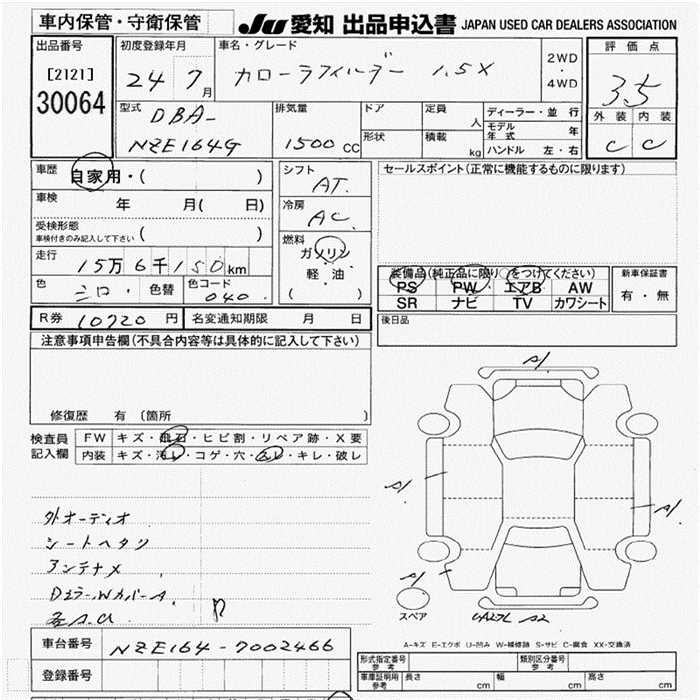 車内保管・守衛保管
JU 愛知 出品申込書 JAPAN USED CAR DEALERS ASSOCIATION
出品番号
[2121]
30064
初度登録年月
24 7月
車名・グレード
カローラフィルダー 1.5X
2WD
・
4WD
評価点
3.5
外装 内装
C C
型式
DBA-
NZE164G
排気量
1500CC
ドア
形状
定員
人
積載
kg
ディーラー・並行
モデル年式 年
ハンドル 左・右
車歴
自家用・( )
車検
年 月( 日)
受検形態
車検付きのみ記入して下さい ( )
走行
15万6千150km
色
シロ・
色替
色コード
040
シフト
AT.
冷房
AC
燃料
ガソリン
軽・油
( )
セールスポイント(正常に機能するものに限ります)
装備品(純正品に限り○をつけてください)
PS PW エアB AW
SR ナビ TV カワシート
新車保証書
有・無
R券 10720円 名変通知期限 月 日
後日品
注意事項申告欄(不具合内容等は具体的に記入して下さい)
修復歴 有 (箇所 )
検査員
記入欄
FW キズ・飛石・ヒビ割・リペア跡・X要
内装 キズ・汚レ・コゲ・穴・スレ・キレ・破レ
外オーディオ
シートヘタリ
アンテナメ
DミラーWカバーA.
A1
A1
A1
A1
スペア
A2
A-キズ E-エクボ U-凹み W-補修跡 S-サビ C-腐食 XX-交換済
車台番号 NZE164-7002466
登録番号
形式指定番号
参考
類別区分番号
参考
車庫証明用
参考
長さ cm 幅 cm 高さ cm